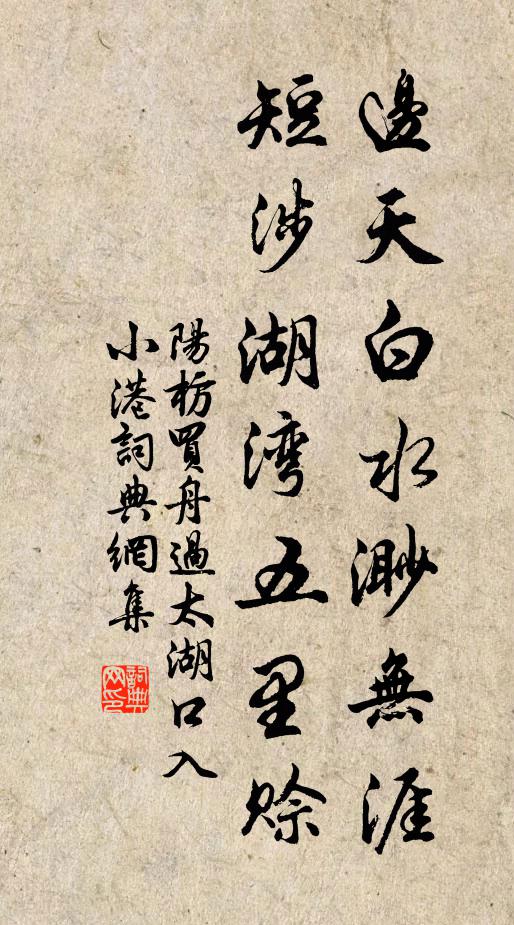 邊天白水渺無涯
短涉湖灣五里賒
陽枋買舟過太湖口入
小港詞典網集
詞典
网印